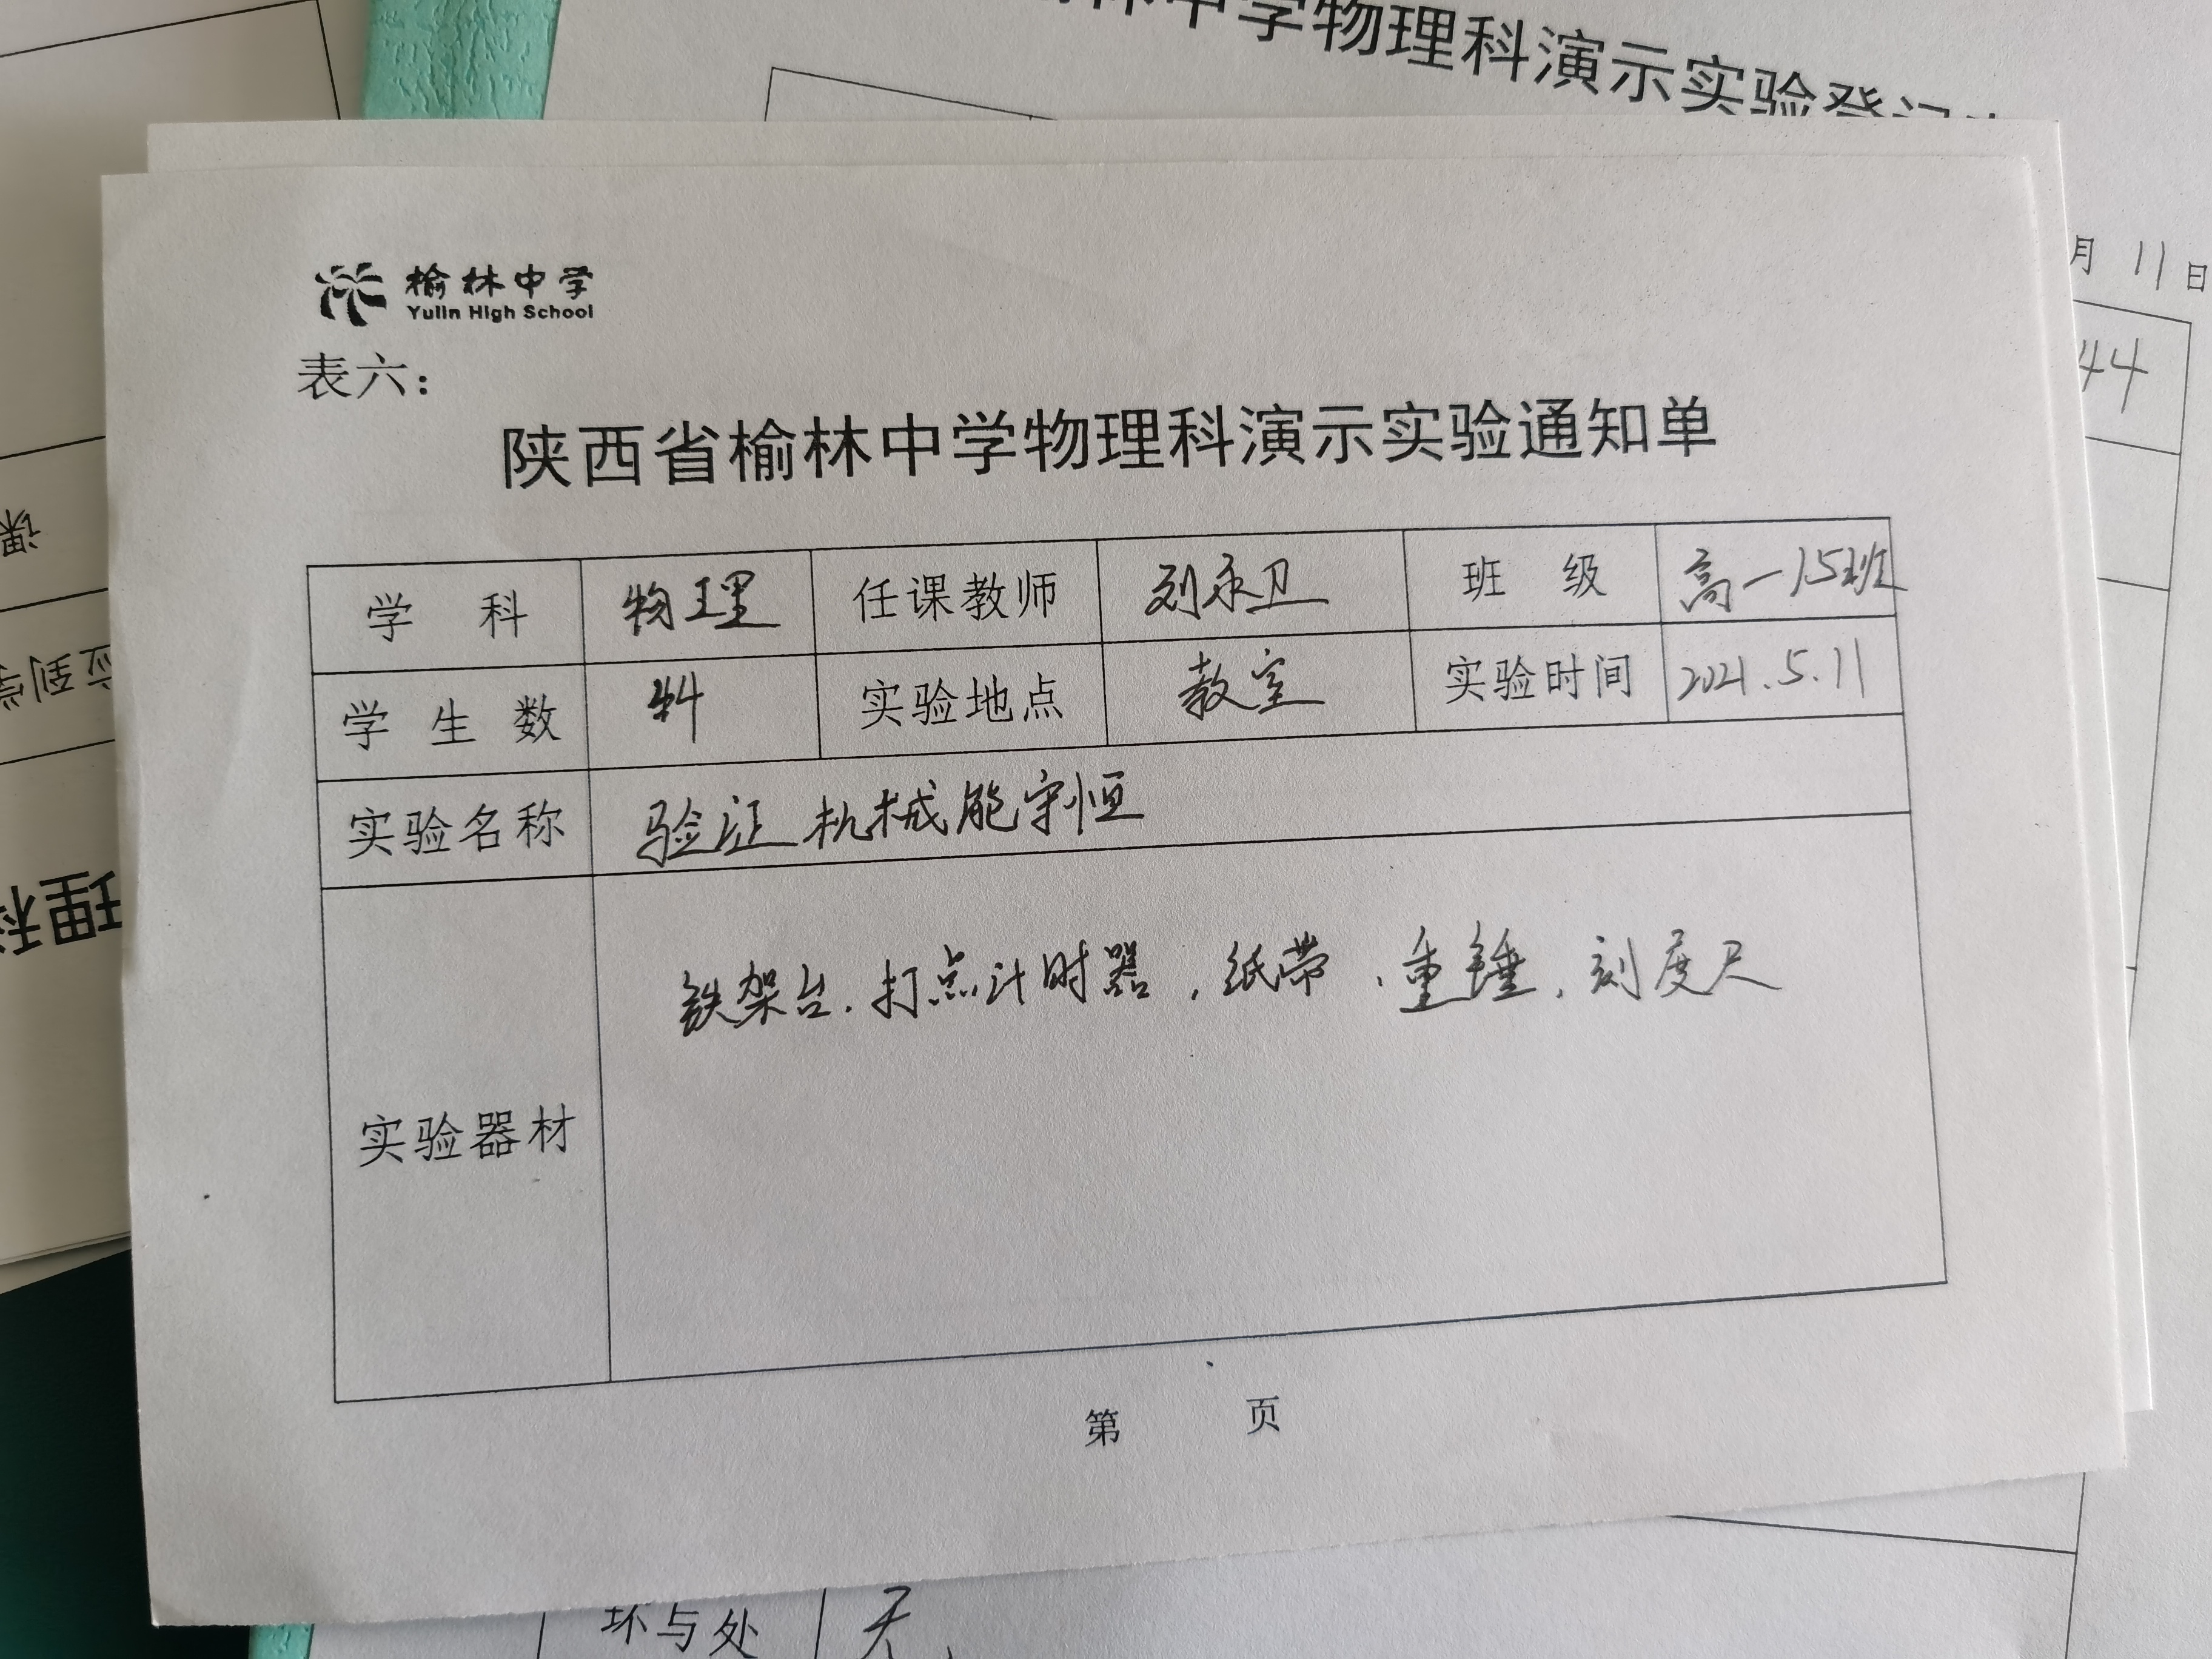 中学物理科演示实验登记
月 11 日
44
榆林中学
Yulin High School
表六：
陕西省榆林中学物理科演示实验通知单
学 科 物理 任课教师 刘永卫 班 级 高一15班
学 生 数 44 实验地点 教室 实验时间 2021.5.11
实验名称 验证机械能守恒
实验器材 铁架台、打点计时器、纸带、重锤、刻度尺
第 页
课
应到学
理科
坏与处 无